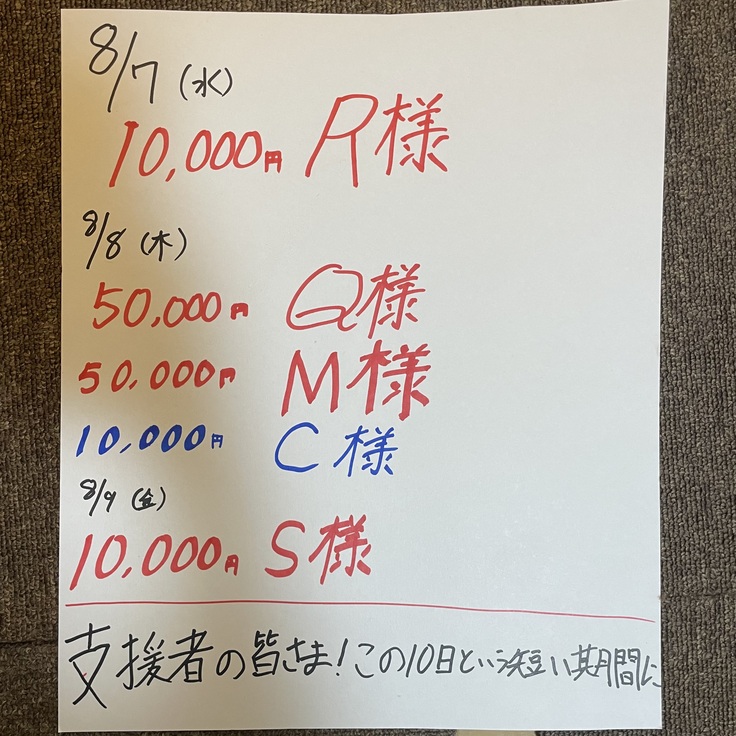 8/7 (水)
10,000円 R様
8/8 (木)
50,000円 Q様
50,000円 M様
10,000円 C様
8/9 (金)
10,000円 S様
支援者の皆さま！この10日という短い期間に